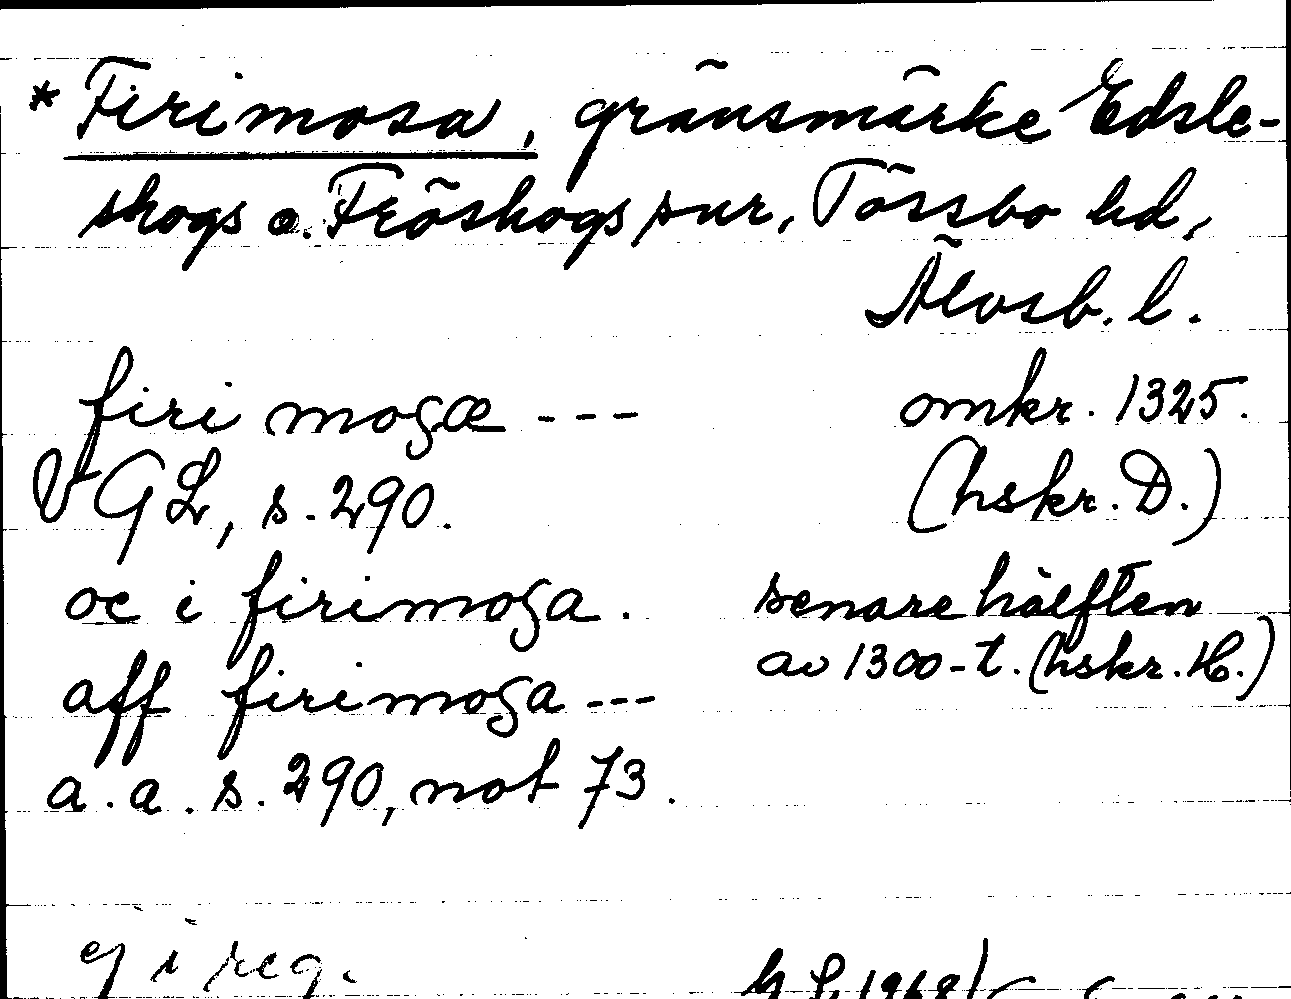 * Firimosa, gränsmärke Edsle-
skogs o. Fröskogs snr, Tössbo hd,
Älvsb. l.
firi mosæ --- omkr. 1325.
VGL, s. 290. (hskr. D.)
oc i firimosa. senare hälften
aff firimosa --- av 1300-t. (hskr. H.)
a. a. s. 290, not 73.
ej i reg.
1968